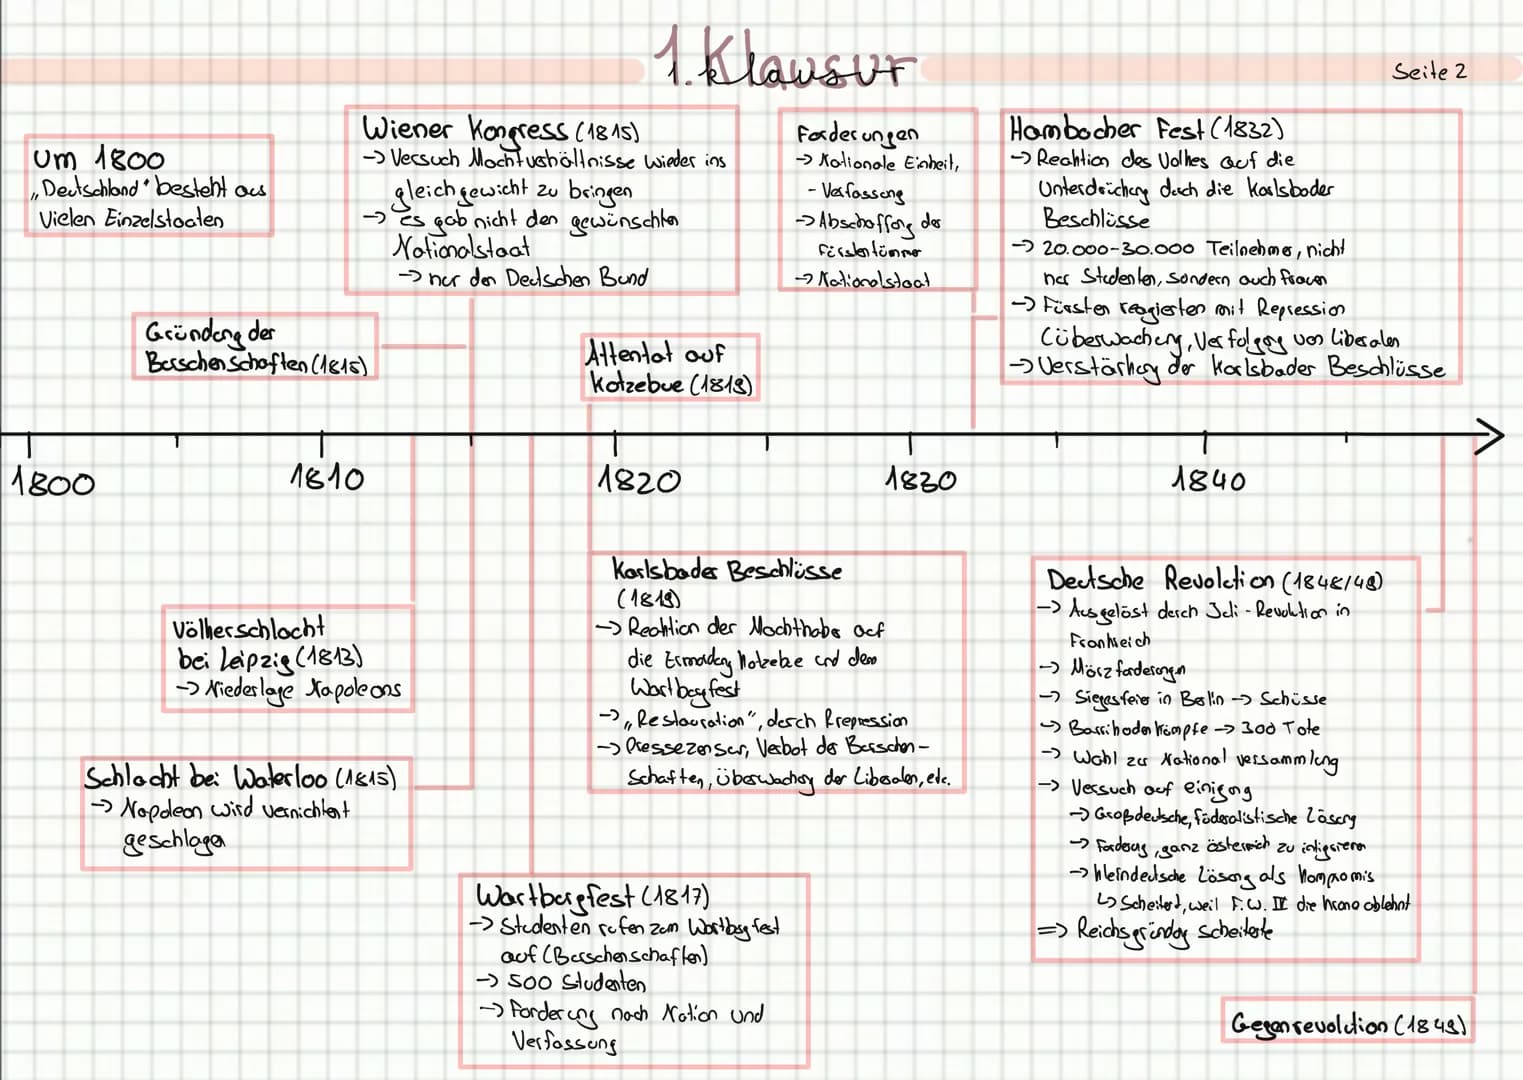 1. Klausur
Seite 2
Um 1800
„Deutschland" besteht aus
Vielen Einzelstaaten
Wiener Kongress (1815)
→ Versuch Machtverhältnisse wieder ins
gleichgewicht zu bringen
→ Es gab nicht den gewünschten
Nationalstaat
→ nur den Deutschen Bund
Forderungen
→ Nationale Einheit,
- Verfassung
→ Abschaffung der
Fürstentümer
→ Nationalstaat
Hambacher Fest (1832)
→ Reaktion des Volkes auf die
Unterdrückung durch die Karlsbader
Beschlüsse
→ 20.000-30.000 Teilnehmer, nicht
nur Studenten, sondern auch Frauen
→ Fürsten reagierten mit Repression
(überwachung, Verfolgung von Liberalen
→ Verstärkung der Karlsbader Beschlüsse
Gründung der
Burschenschaften (1815)
Attentat auf
Kotzebue (1819)
1800
1810
1820
1830
1840
Völkerschlacht
bei Leipzig (1813)
→ Niederlage Napoleons
Schlacht bei Waterloo (1815)
→ Napoleon wird vernichtent
geschlagen
Wartburgfest (1817)
→ Studenten rufen zum Wartburgfest
auf (Burschenschaften)
→ 500 Studenten
→ Forderung nach Nation und
Verfassung
Karlsbader Beschlüsse
(1819)
→ Reaktion der Machthaber auf
die Ermordung Kotzebue und dem
Wartburgfest
→ „Restauration", durch Rrepression
→ Pressezensur, Verbot der Burschen-
Schaften, überwachung der Liberalen, etc.
Deutsche Revolution (1848/49)
→ Ausgelöst durch Juli-Revolution in
Frankreich
→ Märzforderungen
→ Siegesfeier in Berlin → Schüsse
→ Barrikadenkämpfe → 300 Tote
→ Wahl zur National versammlung
→ Versuch auf einigung
→ Großdeutsche, föderalistische Lösung
→ Forderung, ganz österreich zu intigrieren
→ kleindeutsche Lösung als Kompromis
↳ Scheitert, weil F.W. IV die Krone ablehnt
⇒ Reichsgründung scheiterte
Gegenrevolution (1849)